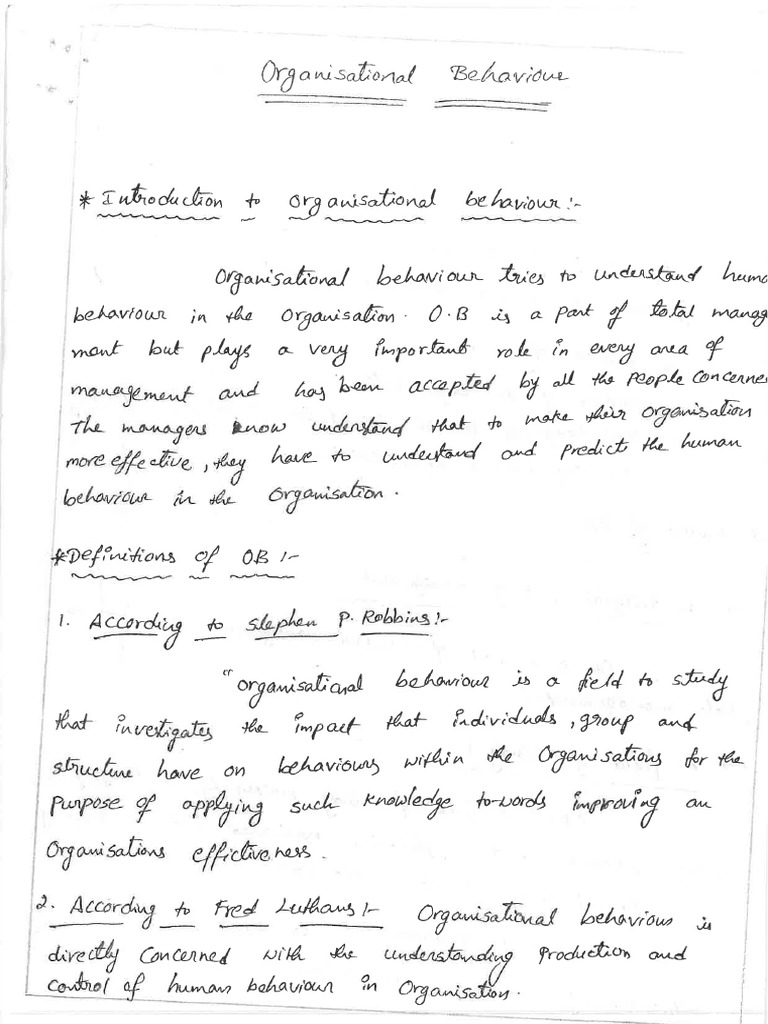 Organisational Behaviour
* Introduction to organisational behaviour :-
Organisational behaviour tries to understand huma
behaviour in the Organisation. O.B is a part of total manag
ment but plays a very important role in every area of
management and has been accepted by all the people concerne
The managers know understand that to make their organisation
more effective, they have to understand and predict the human
behaviour in the Organisation.
* Definitions of OB :-
1. According to Stephen P. Robbins :-
"organisational behaviour is a field to study
that investigates the impact that individuals, group and
structure have on behaviours within the Organisations for the
purpose of applying such knowledge to-words improving an
Organisations effictiveness.
2. According to Fred Luthans :- Organisational behavious is
directly concerned with the understanding Production and
control of human behaviour in Organisation.